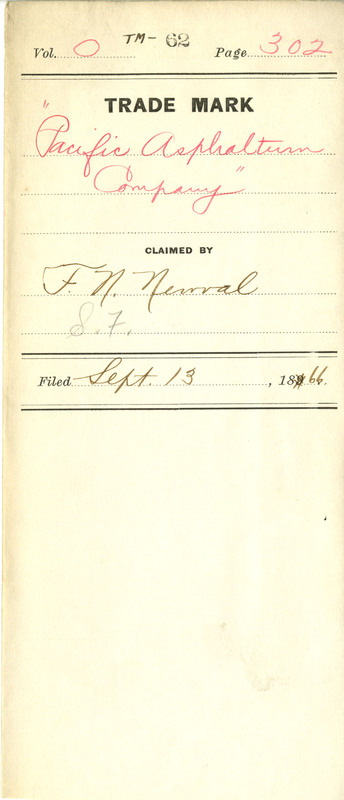 Vol. 0 TM- 62 Page 302
TRADE MARK
"Pacific Asphaltum
Company"
CLAIMED BY
F. N. Newval
S. F.
Filed Sept. 13, 1866.